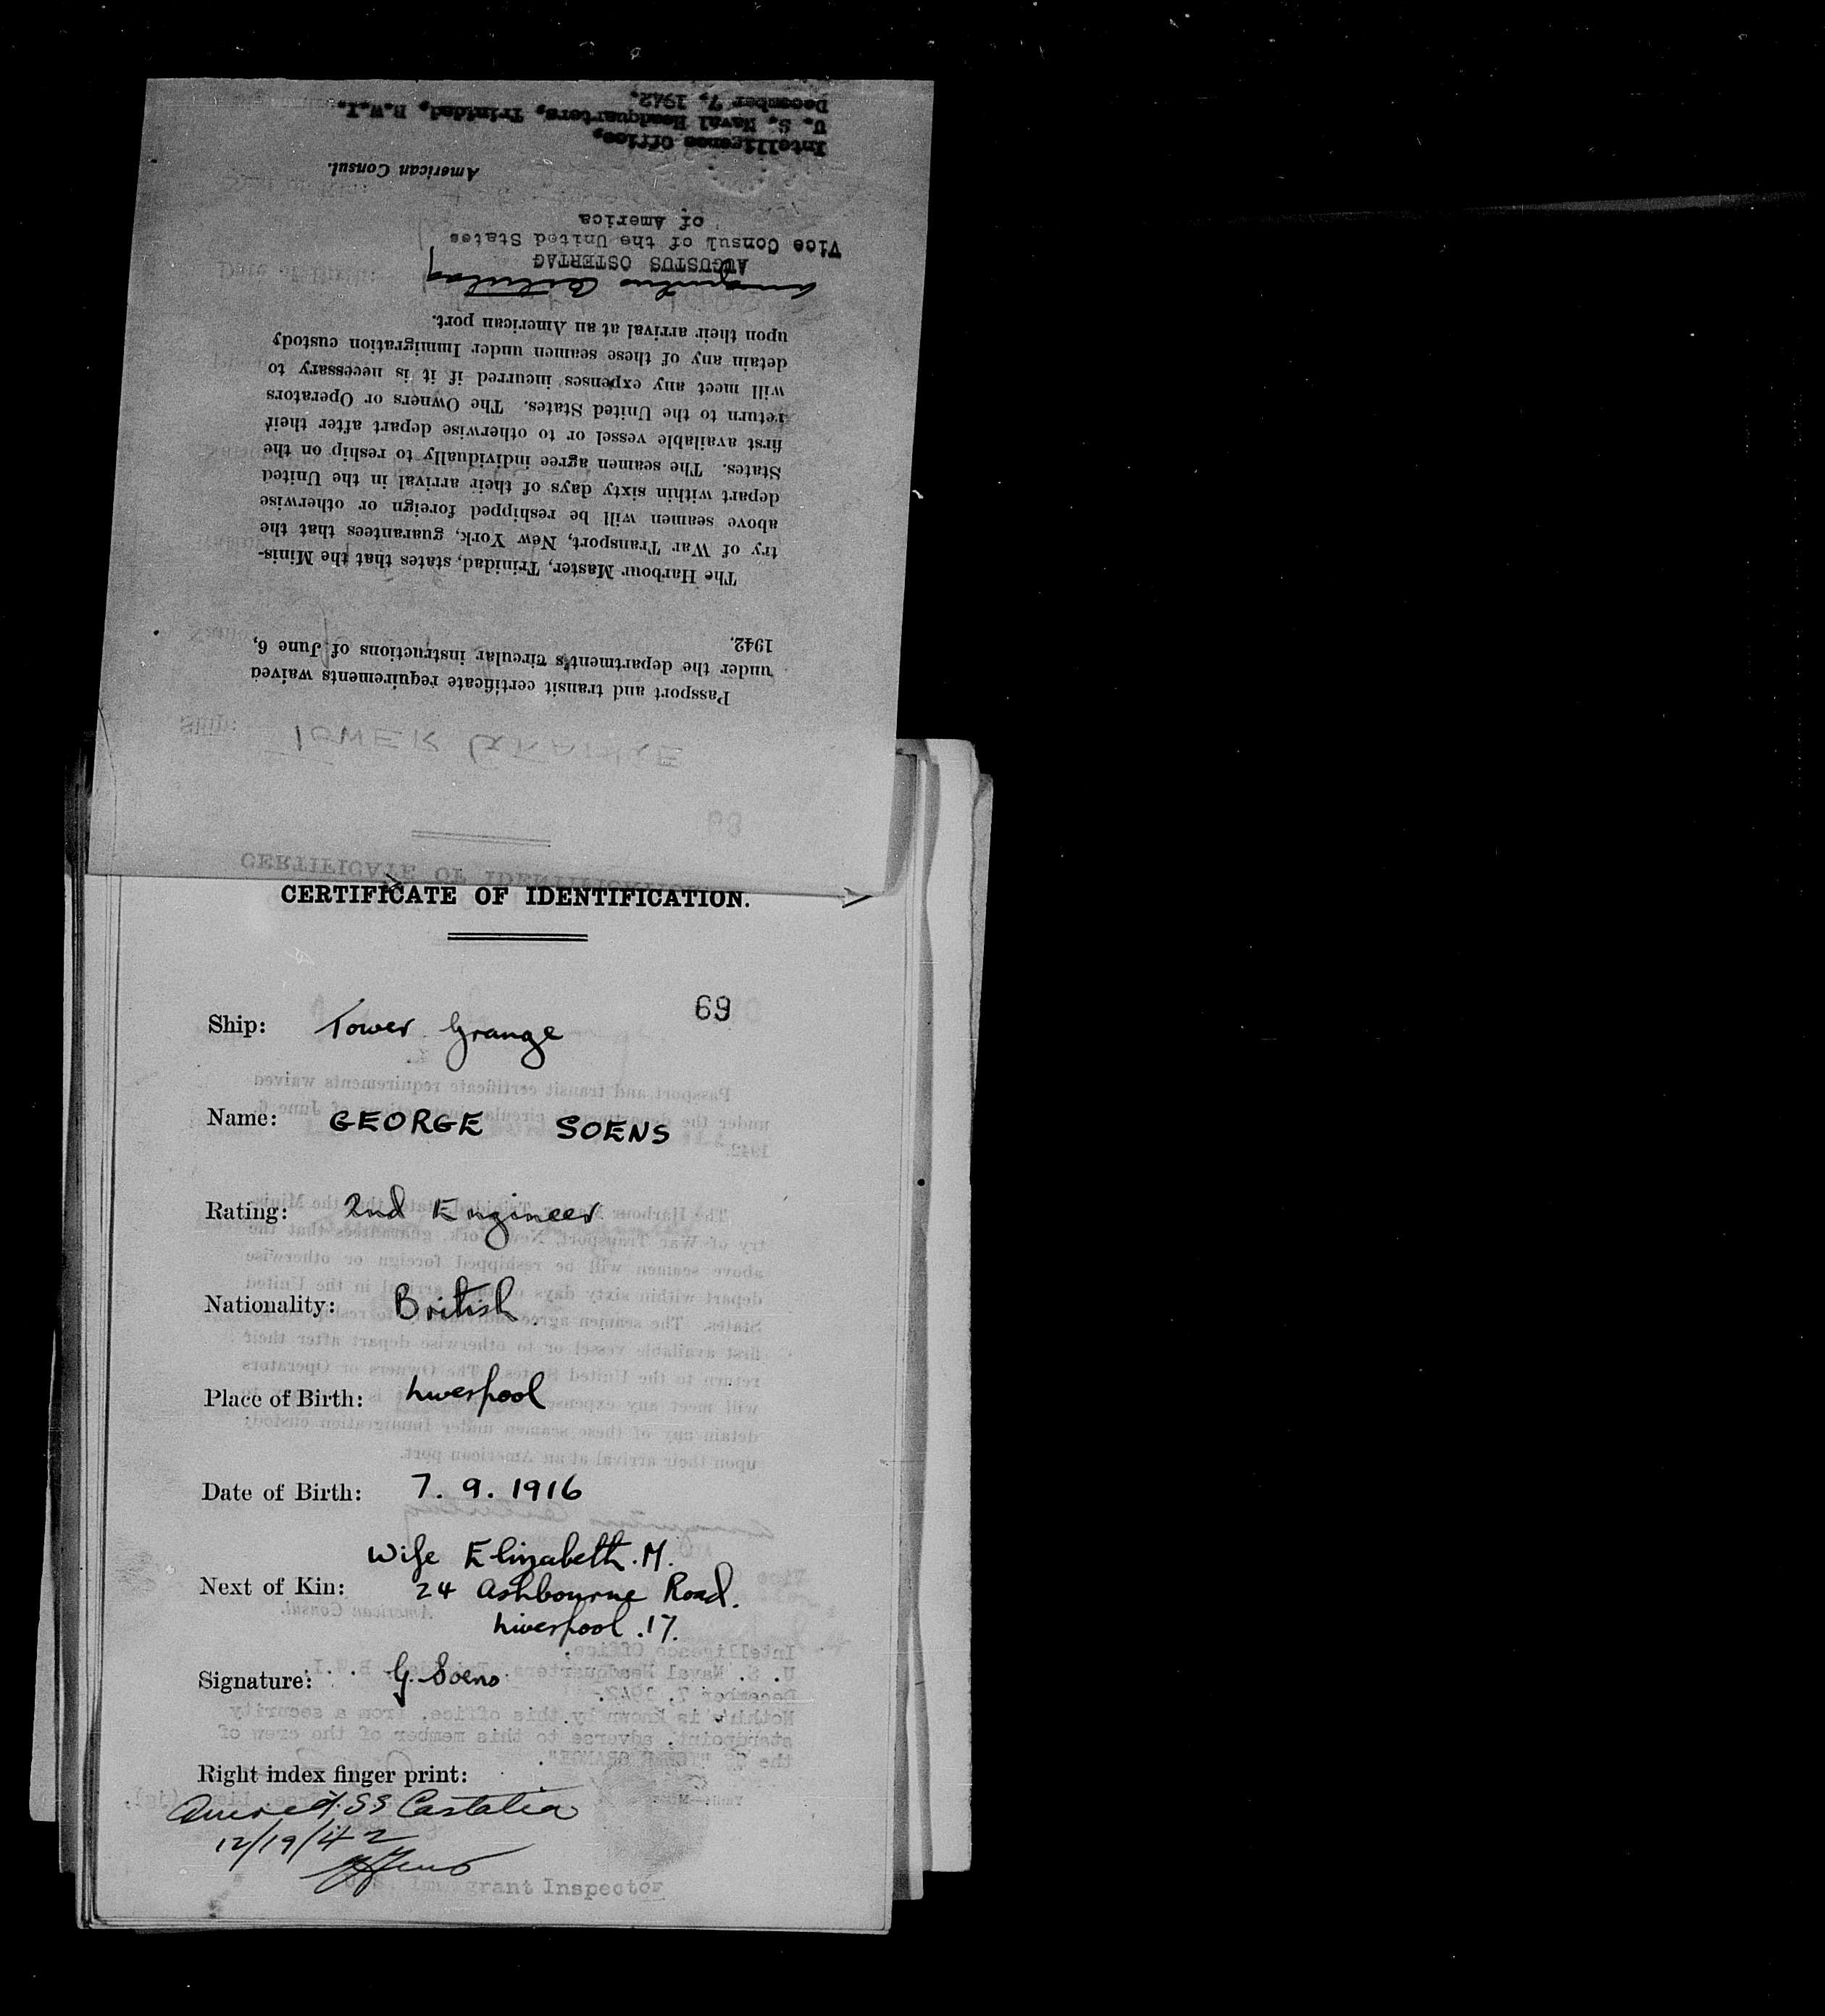 Passport and transit certificate requirements waived
under the department's circular instructions of June 6,
1942.
The Harbour Master, Trinidad, states that the Minis-
try of War Transport, New York, guarantees that the
above seamen will be reshipped foreign or otherwise
depart within sixty days of their arrival in the United
States. The seamen agree individually to reship on the
first available vessel or to otherwise depart after their
return to the United States. The Owners or Operators
will meet any expenses incurred if it is necessary to
detain any of these seamen under Immigration custody
upon their arrival at an American port.
Augustus Ostertag
AUGUSTUS OSTERTAG
Vice Consul of the United States
of America
American Consul.
Intelligence Office,
U. S. Naval Headquarters, Trinidad, B.W.I.
December 7, 1942.
CERTIFICATE OF IDENTIFICATION.
69
Ship: Tower Grange
Name: GEORGE SOENS
Rating: 2nd Engineer
Nationality: British
Place of Birth: Liverpool
Date of Birth: 7. 9. 1916
Wife Elizabeth. M.
Next of Kin: 24 Ashbourne Road.
Liverpool .17.
Signature: G. Soens
Right index finger print:
SS Castalia
12/19/42
U.S. Immigrant Inspector